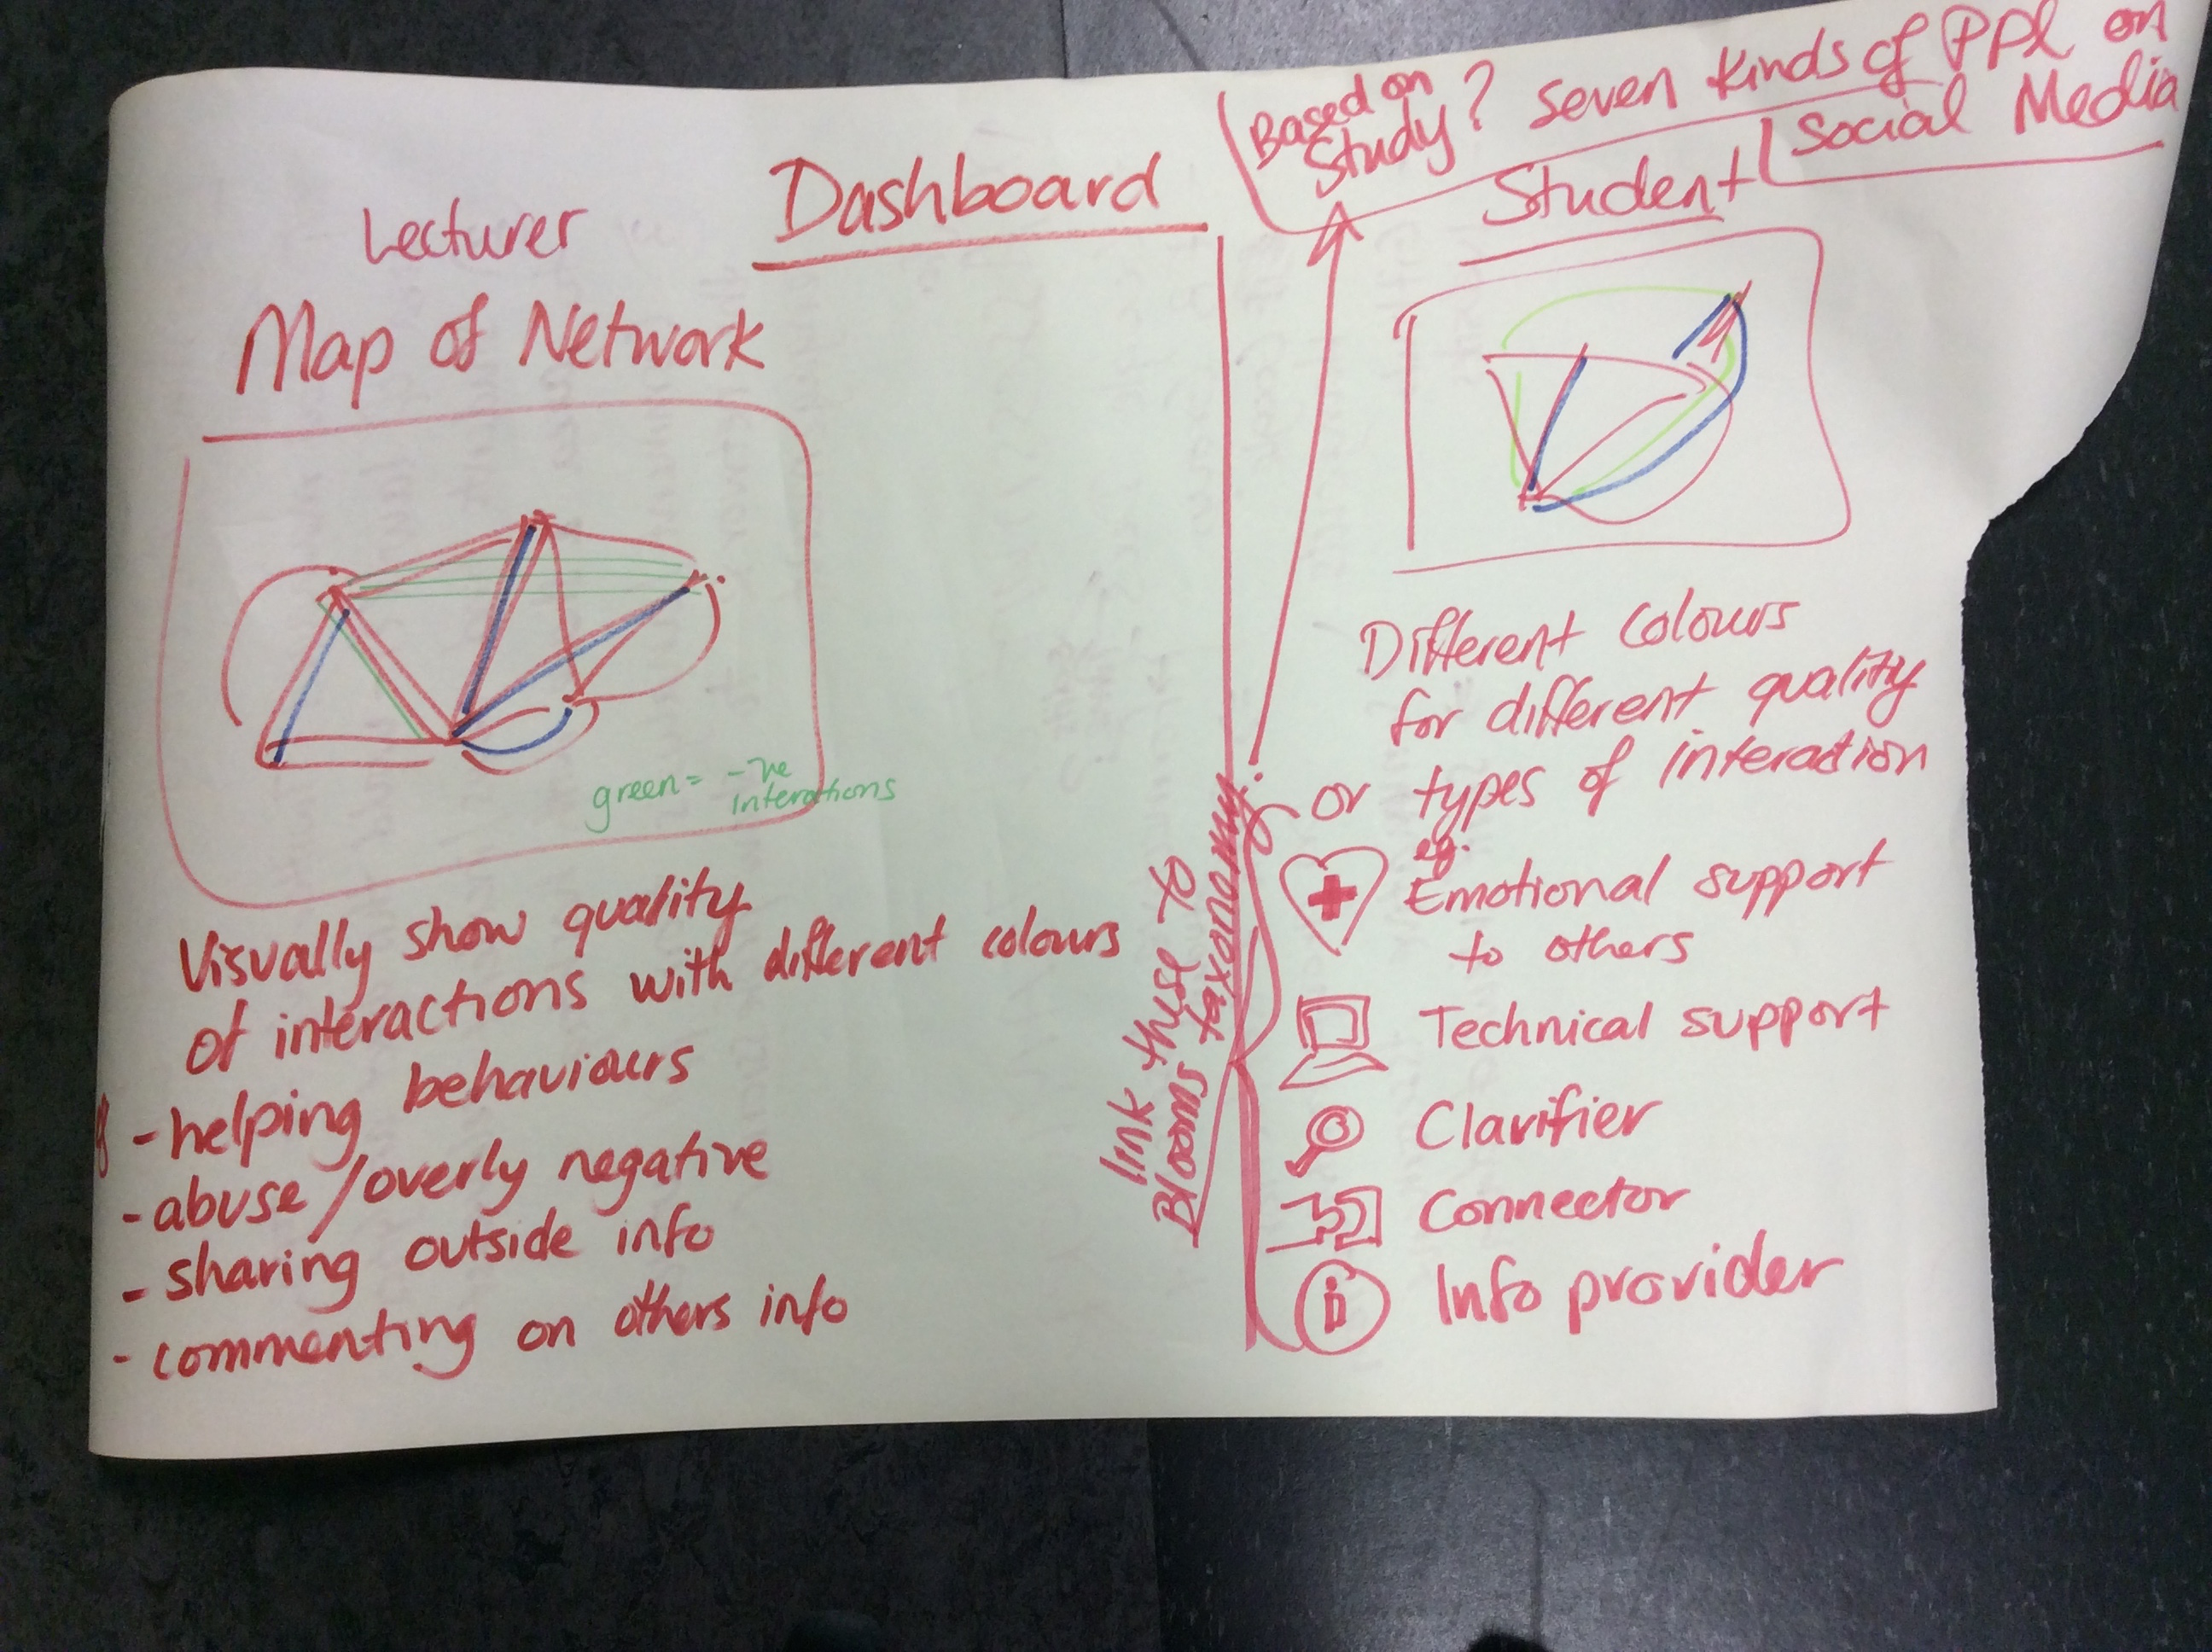 Dashboard
Lecturer
Map of Network
green = -ve
interations
Visually show quality
of interactions with different colours
- helping behaviours
- abuse/overly negative
- sharing outside info
- commenting on others info
Based on
Study? Seven Kinds of PPL on
Social Media
Student
Different colours
for different quality
or types of interaction
eg.
Emotional support
to others
Technical support
Clarifier
Connector
i Info provider
link these to
Blooms taxonomy